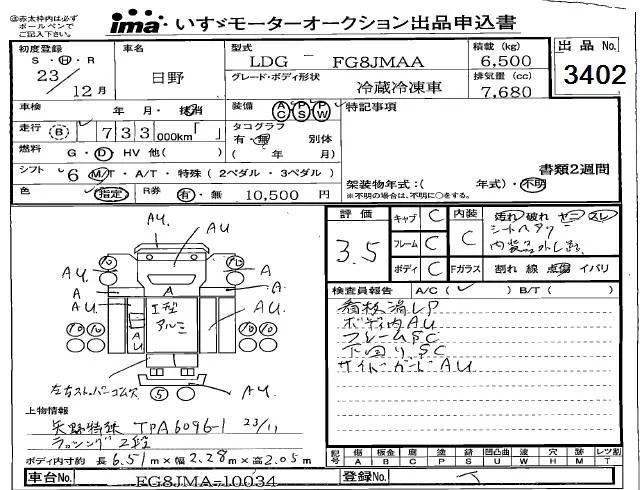 @赤太枠内は必ず
ボールペンで
ご記入下さい。
ima いすゞモーターオークション出品申込書
初度登録 車名 型式 積載 (kg) 出品 No.
S・H・R 日野 LDG － FG8JMAA 6,500
23／12月 グレード・ボディ形状 排気量 (cc) 3402
冷蔵冷凍車 7,680
車検 年 月・抹消 装備 AC PS PW 特記事項
走行 B 7 3 3 000km「 」 タコグラフ
有・無 別体
燃料 G・D・HV 他( ) ( 年 月)
シフト 6 M/T・A/T・特殊 (2ペダル・3ペダル) 書類2週間
色 指定 R券 有・無 10,500 円 架装物年式:( 年式)・不明
※不明の場合は、不明に○をする。
評価 キャブ C 内装 汚れ 破れ ヤニ スレ
3.5 フレーム C C シートヘタリ
内装品外し跡
ボディ C Fガラス 割れ 線 点傷 イバリ
検査員報告 A/C( ✓ ) B/T( )
看板済LP
ボディ内AU
フレームSC
下回りSC
サイドガードAU
AU. AU
10 10
AU. A A
A A A
AU. AU.
I型
アルミ
10 10 AU 10 10
左右ストッパーゴム欠 5 AU.
上物情報
矢野特殊 TPA6096-1 23/11
ラッシング2段
ボディ内寸約 長 6.51m×幅 2.28m×高 2.05m
記号 傷 A 板金 B 腐 C 塗 P 錆 S 凹凸曲 U 波 W 穴 H 跡 M レツ割 T
車台No. FG8JMA-10034 登録No.